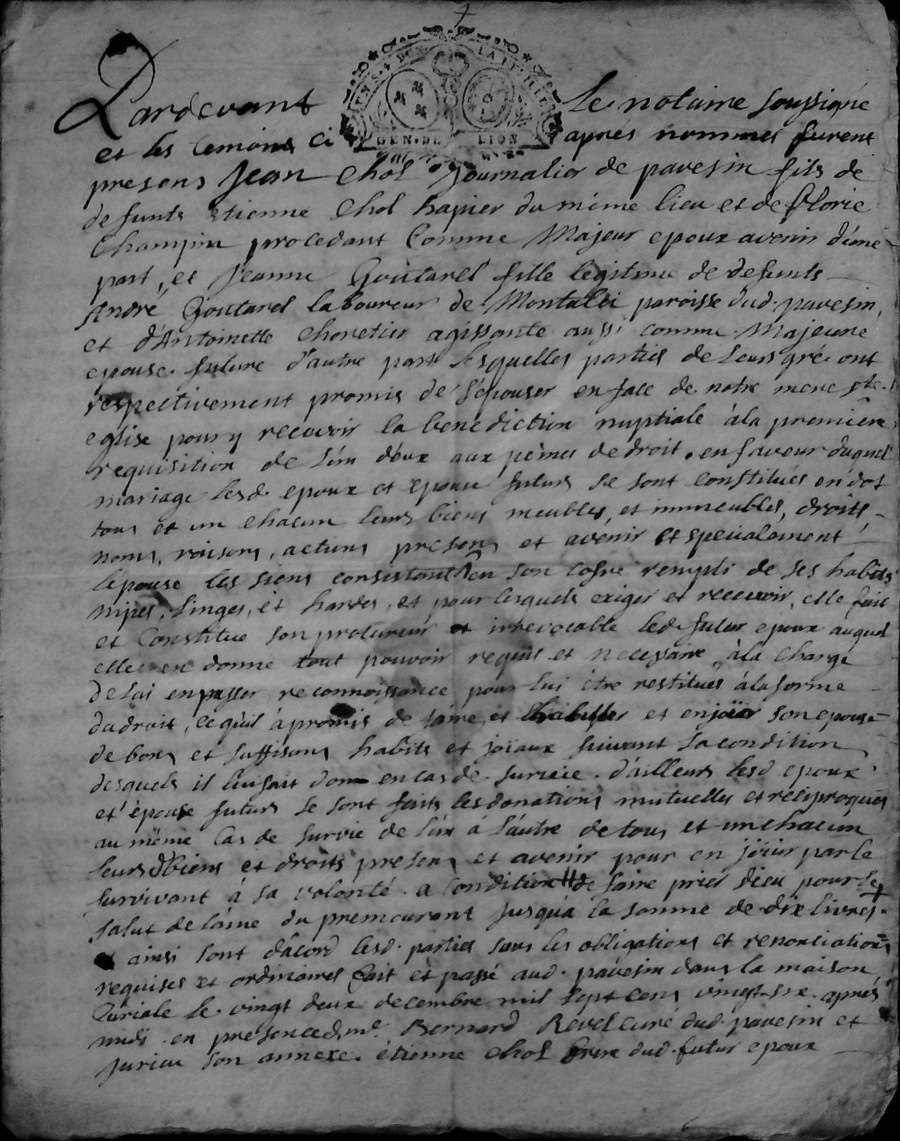 Pardevant Le notaire soussigné
et les temoins ci apres nommés furent
presens Jean Chol Journalier de pavesin fils de
defunts Etienne Chol du même lieu et de florie
Champin procedant Comme Majeur epoux avenir d'une
part, et Jeanne Goutarel fille legitime de defunts
André Goutarel laboureur de paroisse dud. pavesin,
et d'Antoinette agissante aussi comme Majeure
epouse future d'autre part lesquelles parties de leurs gré ont
respectivement promis de s'épouser en face de notre mere ste.
eglise pour y recevoir la benediction nuptiale à la premiere
requisition de l'un d'eux aux peines de droit. en faveur duquel
mariage lesd. epoux et epouse futurs se sont constitués en dot
tous et un chacun leurs biens meubles, et immeubles, droits
noms, raisons, actions presens et avenir et specialement
l'epouse les siens consistant en son cofre rempli de ses habits
nipes, linges, et hardes, et pour lesquels exiger et recevoir, elle fait
et Constitue son procureur irrevocable led. futur epoux auquel
elle en donne tout pouvoir requis et necessaire, à la charge
de lui en passer reconnoissance pour lui être restitués à la forme
du droit, ce qu'il à promis de faire, et habiller et enjoïer son epouse
de bons et suffisans habits et joïaux suivant sa condition
desquels il lui fait don en cas de survie. d'ailleurs lesd epoux
et epouse futurs se sont faits les donations mutuelles et réciproques
au même Cas de survie de l'un à l'autre de tous et un chacun
leurs biens et droits presens et avenir pour en joüir par le
survivant à sa volonté. a condition de faire prier dieu pour le
salut de l'ame du premourant jusqu'a la somme de dix livres.
ainsi sont d'acord lesd. parties sous les obligations et renonciations
requises et ordinaires fait et passé aud. pavesin dans la maison
Curiale le vingt deux decembre mil sept cens vingt six après
midi en presence de mre. Bernard Revel curé dud. pavesin et
jurieu son annexe. étienne Chol frere dud. futur epoux